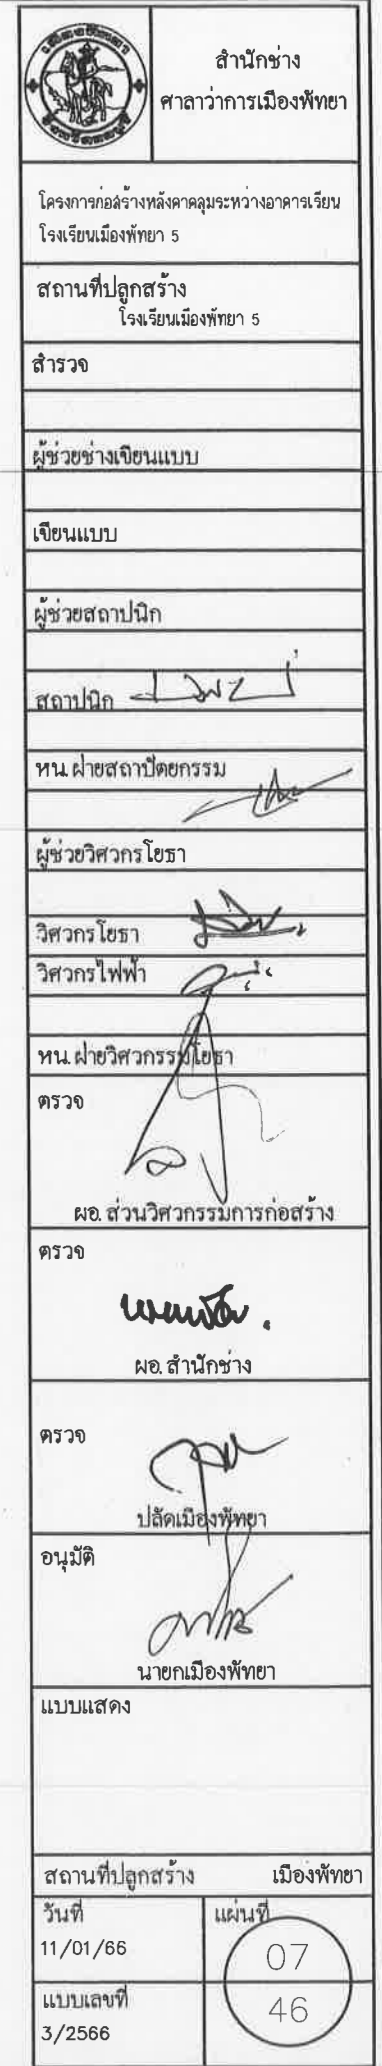 เมืองพัทยา
จังหวัดชลบุรี
สำนักช่าง
ศาลาว่าการเมืองพัทยา
โครงการก่อสร้างหลังคาคลุมระหว่างอาคารเรียน
โรงเรียนเมืองพัทยา 5
สถานที่ปลูกสร้าง
โรงเรียนเมืองพัทยา 5
สำรวจ
ผู้ช่วยช่างเขียนแบบ
เขียนแบบ
ผู้ช่วยสถาปนิก
สถาปนิก
หน.ฝ่ายสถาปัตยกรรม
ผู้ช่วยวิศวกรโยธา
วิศวกรโยธา
วิศวกรไฟฟ้า
หน.ฝ่ายวิศวกรรมโยธา
ตรวจ
ผอ.ส่วนวิศวกรรมการก่อสร้าง
ตรวจ
ผอ.สำนักช่าง
ตรวจ
ปลัดเมืองพัทยา
อนุมัติ
นายกเมืองพัทยา
แบบแสดง
สถานที่ปลูกสร้าง เมืองพัทยา
วันที่
11/01/66
แผ่นที่
07
46
แบบเลขที่
3/2566